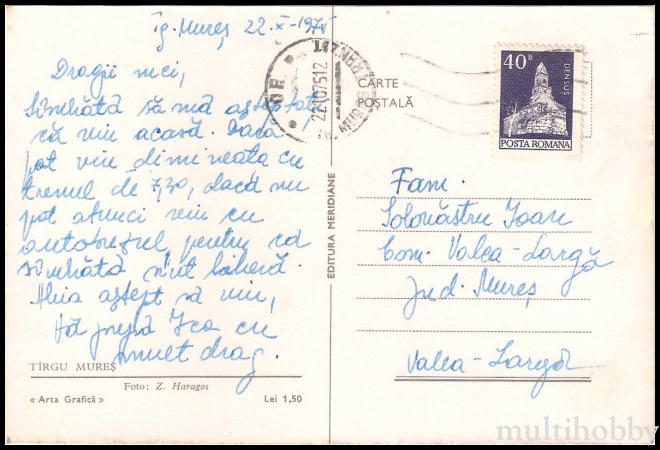 Tg. Mureș 22.X-1975
Dragii mei,
Sîmbătă să mă așteptați
că viu acasă. Dacă
pot viu dimineața cu
trenul de 7,30, dacă nu
pot atunci viu cu
autobusul, pentru că
sîmbătă sînt liberă.
Abia aștept să viu,
Vă pupă Ica cu
mult drag.
TÎRGU MUREȘ
Foto: Z. Haragos
« Arta Grafică » Lei 1,50
EDITURA MERIDIANE
CARTE
POȘTALĂ
22.10.75.12
40 B
DENSUȘ
POSTA ROMANA
Fam.
Solovăstru Ioan
Com. Valea-Largă
Jud. Mureș
Valea-Largă
multihobby